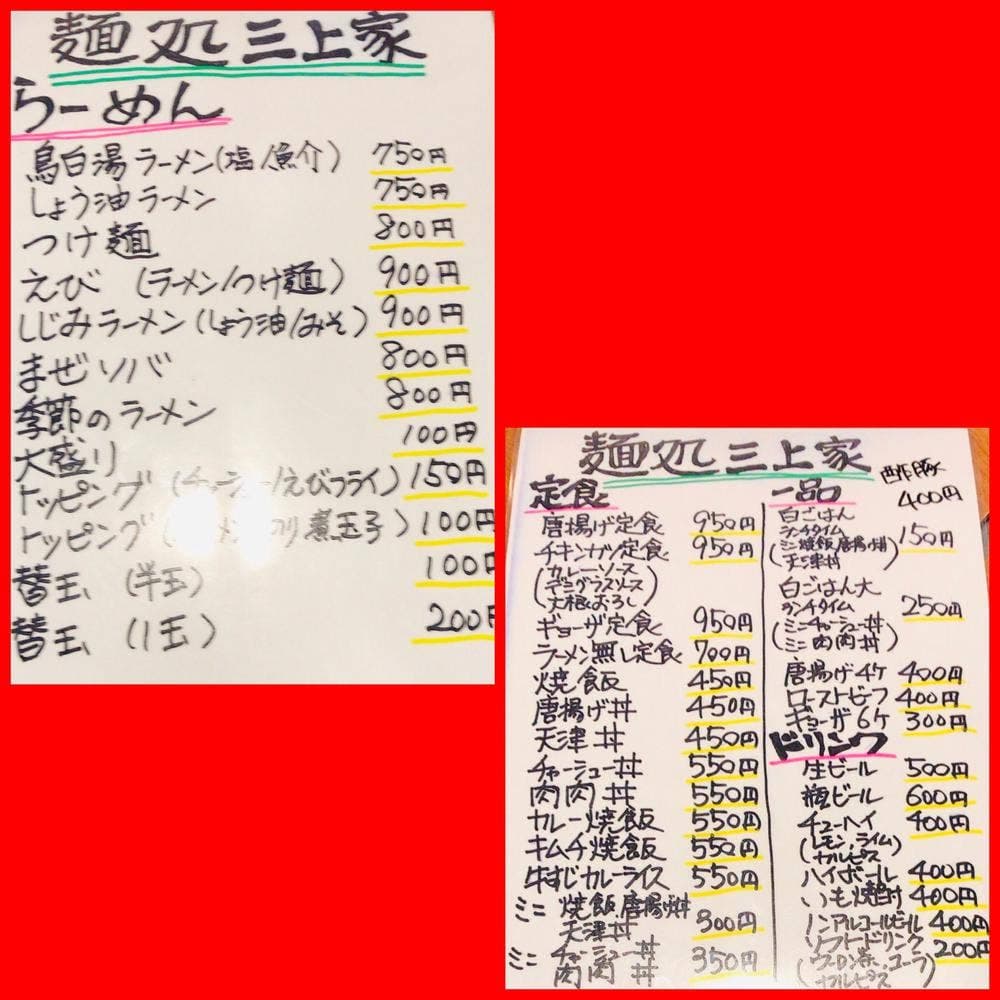 麺処三上家
らーめん
鳥白湯ラーメン(塩/魚介) 750円
しょう油ラーメン 750円
つけ麺 800円
えび (ラーメン/つけ麺) 900円
しじみラーメン(しょう油/みそ) 900円
まぜソバ 800円
季節のラーメン 800円
大盛り 100円
トッピング(チャーシュー/えびフライ) 150円
トッピング( 煮玉子) 100円
替玉 (半玉) 100円
替玉 (1玉) 200円
麺処三上家
定食
唐揚げ定食 950円
チキンカツ定食 950円
(カレーソース
デミグラスソース
大根おろし)
ギョーザ定食 950円
ラーメン無し定食 700円
焼飯 450円
唐揚げ丼 450円
天津丼 450円
チャーシュー丼 550円
肉肉丼 550円
カレー焼飯 550円
キムチ焼飯 550円
牛すじカレーライス 550円
ミニ 焼飯.唐揚げ丼
天津丼 300円
ミニ チャーシュー丼
肉肉丼 350円
一品
酢豚 400円
白ごはん
ランチタイム 150円
(ミニ焼飯/唐揚げ丼
天津丼)
白ごはん大
ランチタイム 250円
(ミニチャーシュー丼
ミニ肉肉丼)
唐揚げ4ケ 400円
ローストビーフ 400円
ギョーザ6ケ 300円
ドリンク
生ビール 500円
瓶ビール 600円
チューハイ 400円
(レモン.ライム
カルピス)
ハイボール 400円
いも焼酎 400円
ノンアルコールビール 400円
ソフトドリンク 200円
(ウーロン茶.コーラ
カルピス)